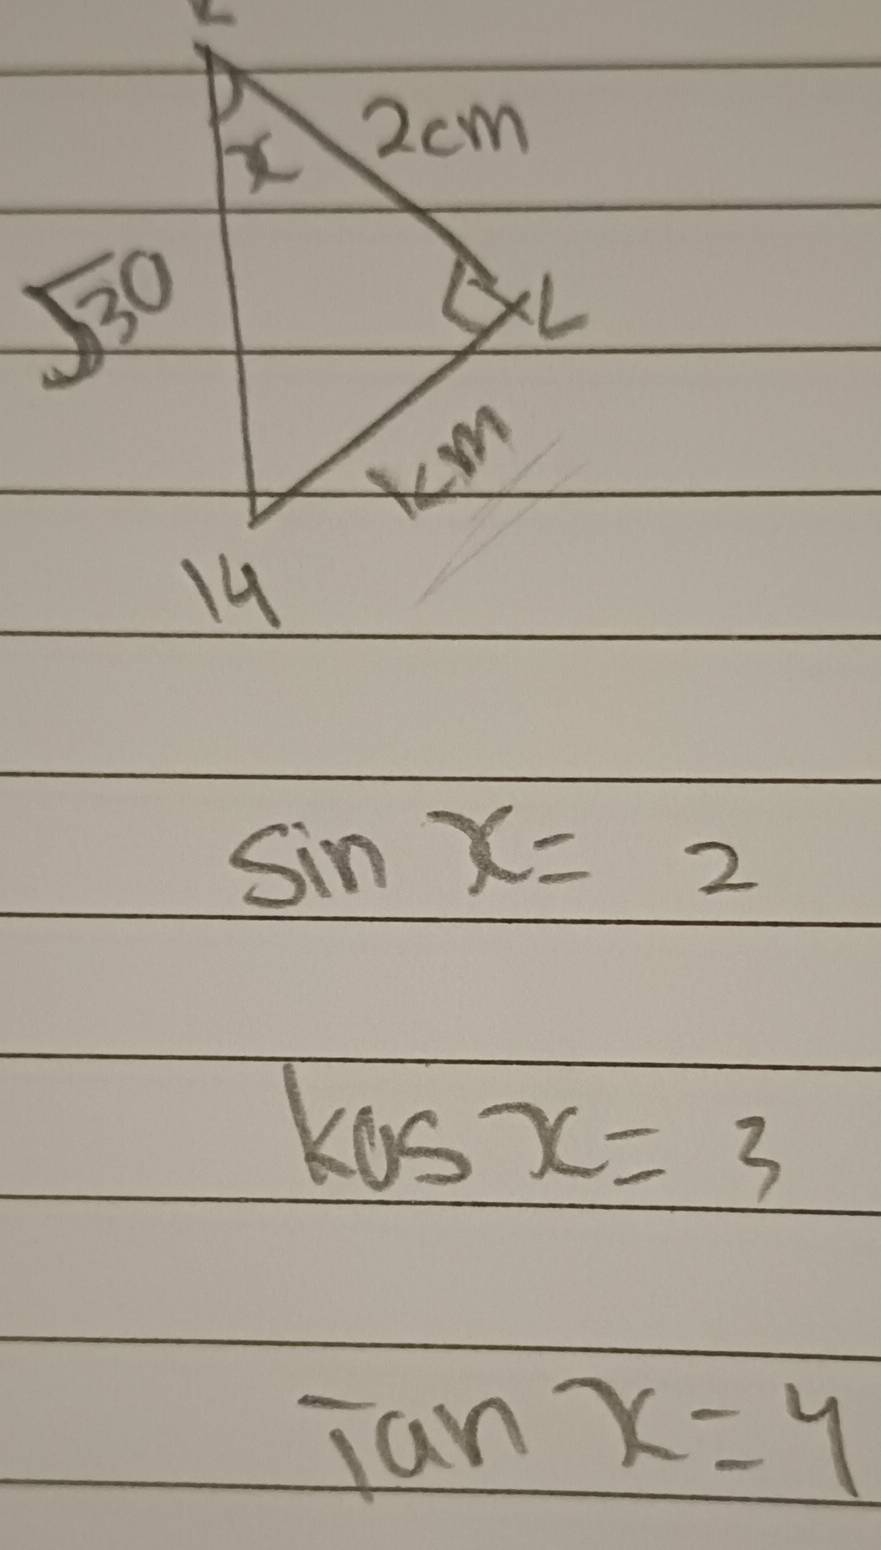 x
2cm
√30
L
km
14
sin x = 2
kos x = 3
Tan x = 4